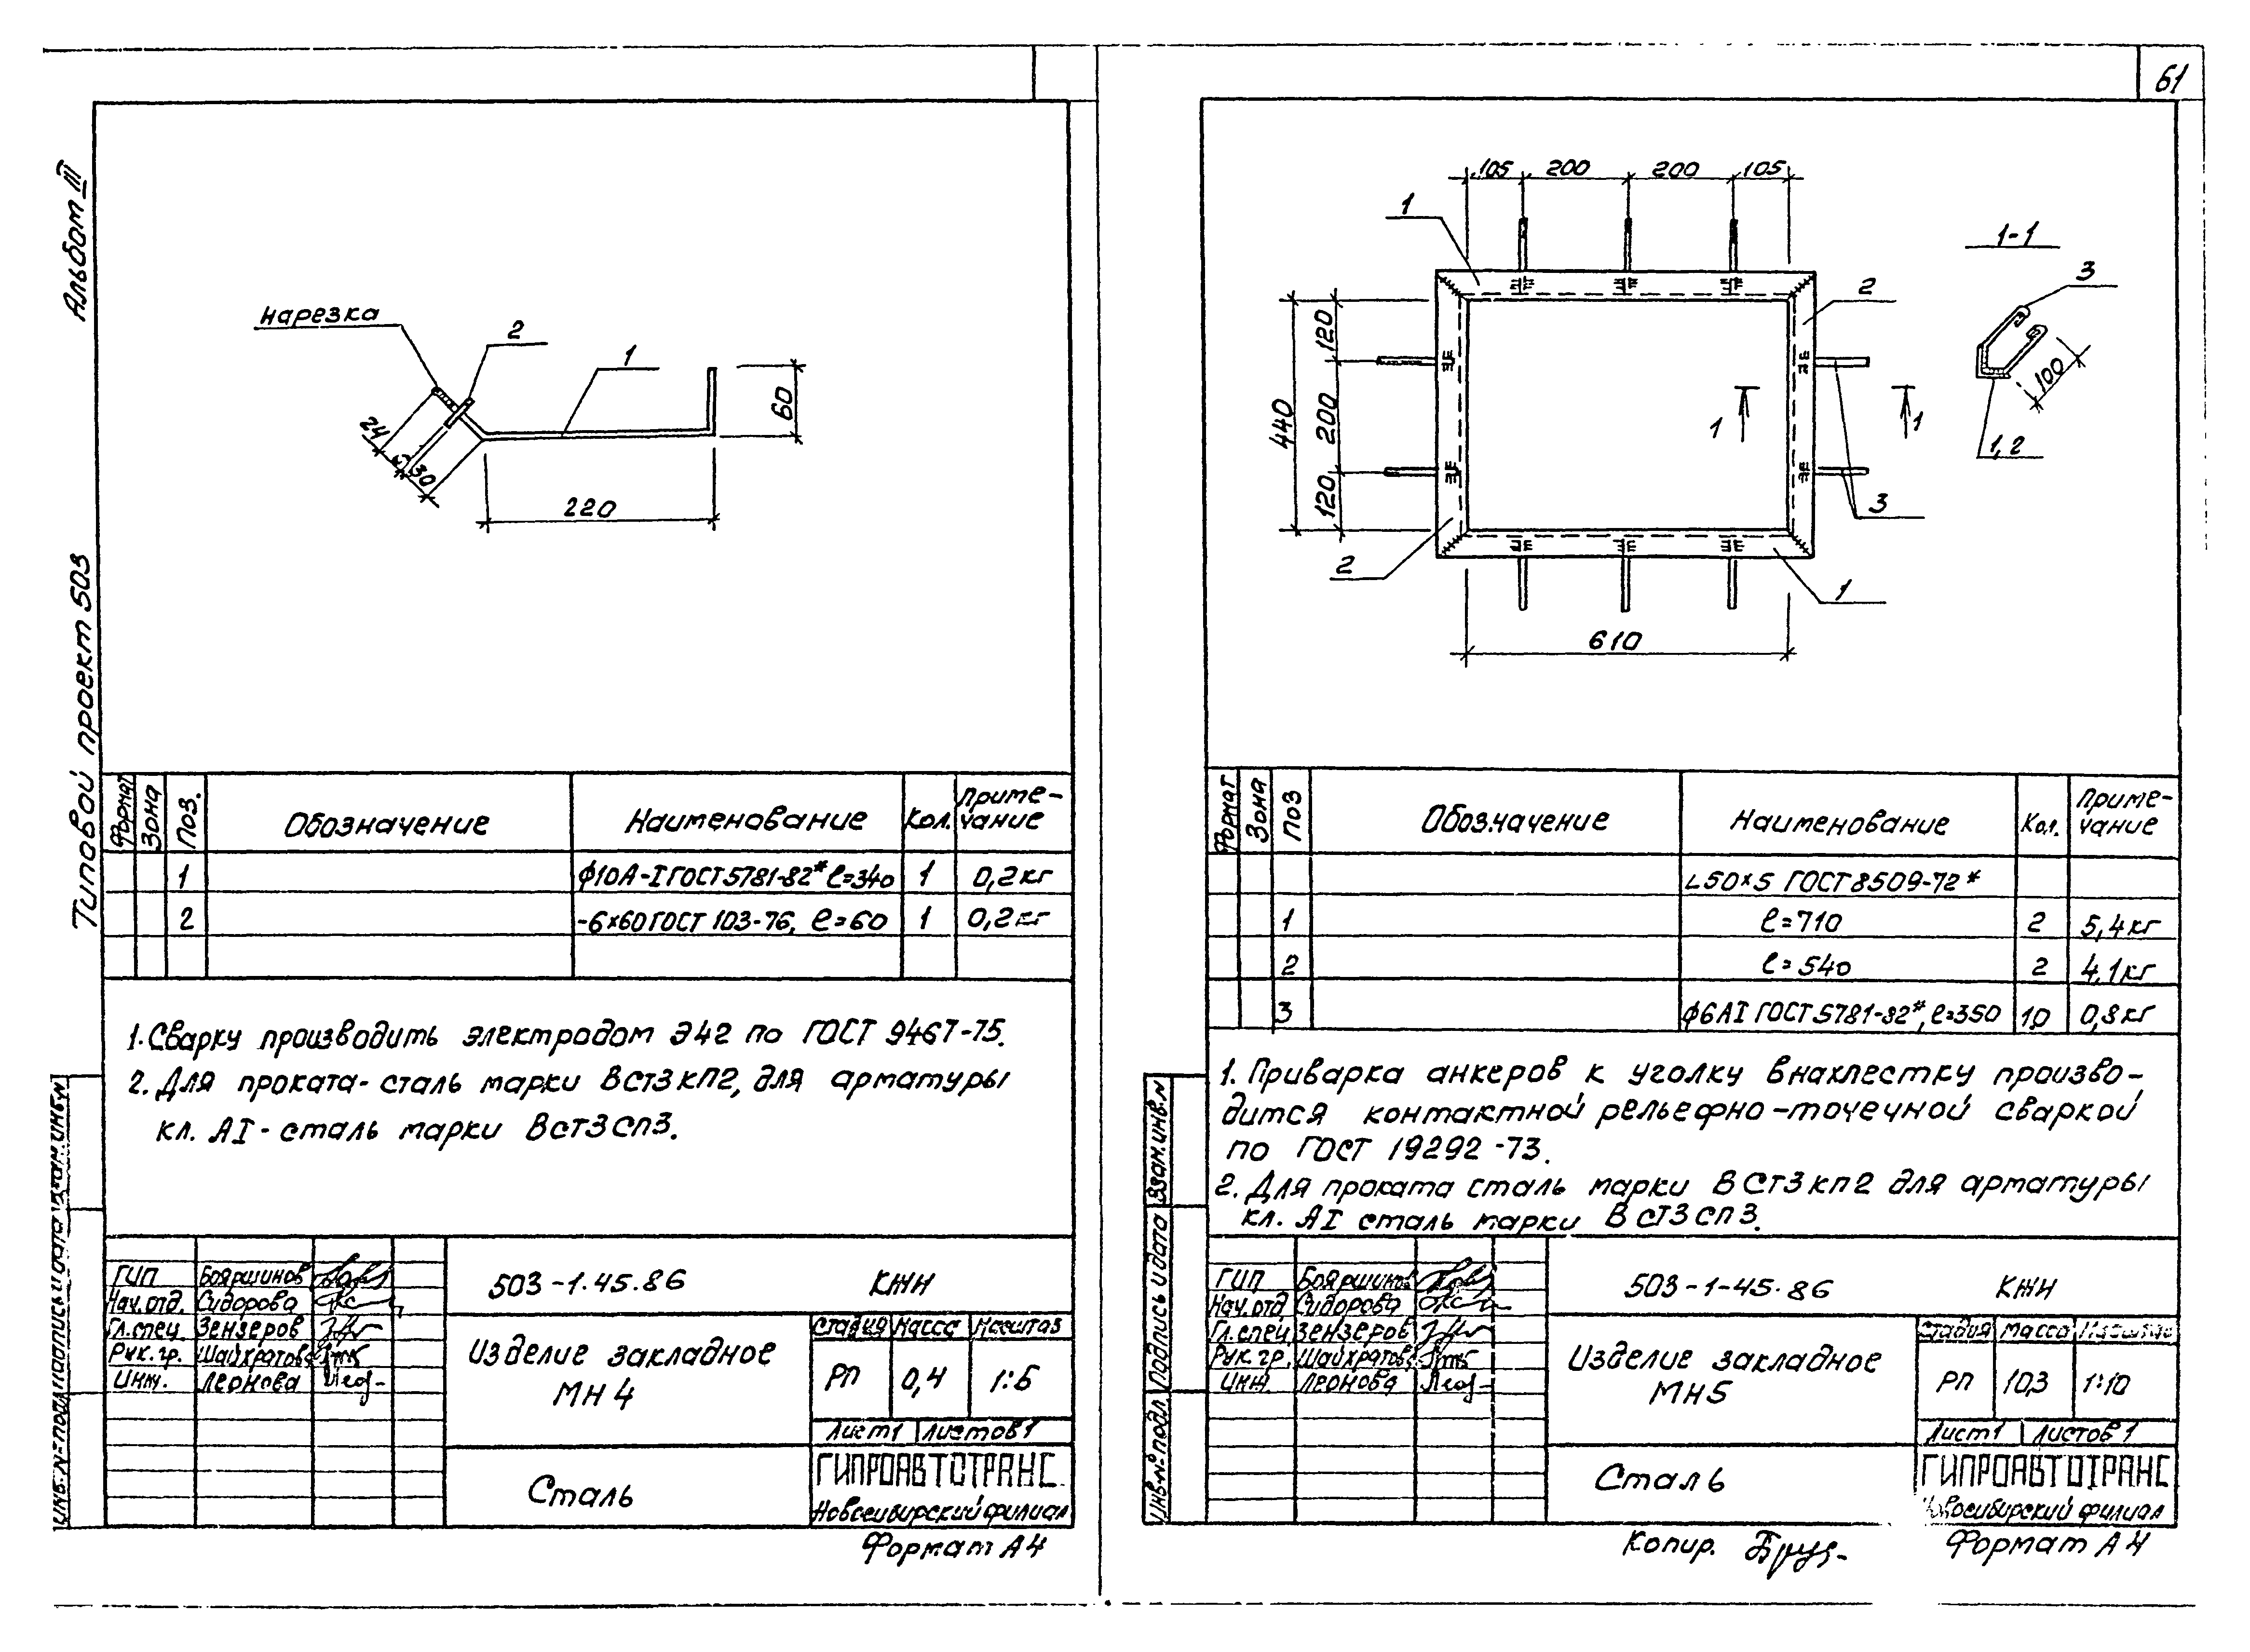 61
Альбом III
Типовой проект 503
нарезка
2
1
60
24
5
30
220
Формат
Зона
Поз.
Обозначение
Наименование
Кол.
Приме-
чание
1 ф10А-I ГОСТ 5781-82* ℓ=340 1 0,2кг
2 -6×60 ГОСТ 103-76, ℓ=60 1 0,2кг
1. Сварку производить электродом Э42 по ГОСТ 9467-75.
2. Для проката- сталь марки ВСт3кп2, для арматуры
кл. АI - сталь марки ВСт3сп3.
ГИП Бояршинов
Нач.отд. Сидорова
Гл.спец. Зензеров
Рук.гр. Шайхратова
Инж. Леонова
503-1.45.86 КЖН
Изделие закладное
МН4
Стадия Масса Масштаб
РП 0,4 1:5
Лист 1 Листов 1
Сталь
ГИПРОАВТОТРАНС
Новосибирский филиал
Формат А4
105 200 200 105
1
1-1
3
2
120
440
200
120
100
1
1
1,2
3
2
1
610
Формат
Зона
Поз
Обозначение
Наименование
Кол.
Приме-
чание
L50×5 ГОСТ 8509-72*
1 ℓ=710 2 5,4кг
2 ℓ=540 2 4,1кг
3 ф6АI ГОСТ 5781-82*, ℓ=350 10 0,8кг
1. Приварка анкеров к уголку внахлестку произво-
дится контактной рельефно-точечной сваркой
по ГОСТ 19292-73.
2. Для проката сталь марки ВСт3кп2 для арматуры
кл. АI сталь марки ВСт3сп3.
Инв.№ подл. Подпись и дата Взам.инв.№
ГИП Бояршинов
Нач.отд Сидорова
Гл.спец Зензеров
Рук.гр. Шайхратова
Инж. Леонова
503-1-45.86 КЖН
Изделие закладное
МН5
Стадия Масса Масштаб
РП 10,3 1:10
Лист 1 Листов 1
Сталь
ГИПРОАВТОТРАНС
Новосибирский филиал
Копир.
Формат А4